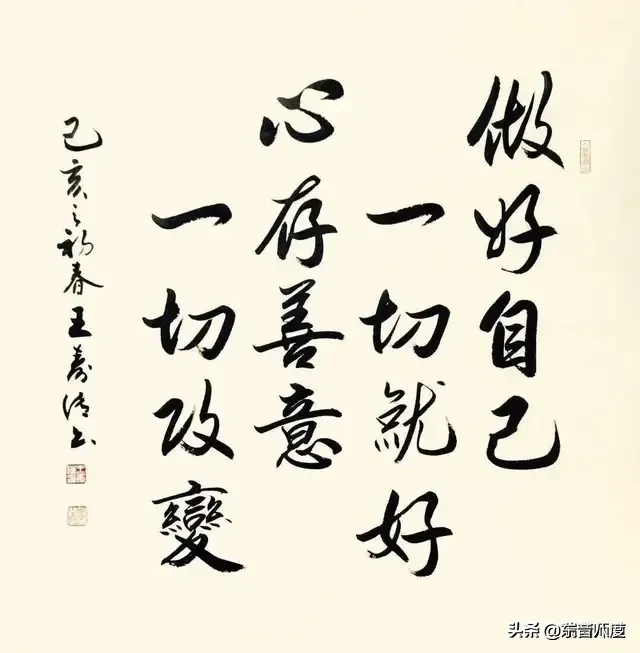 做好自己
一切就好
心存善意
一切改變
己亥之初春王壽书
头条 @